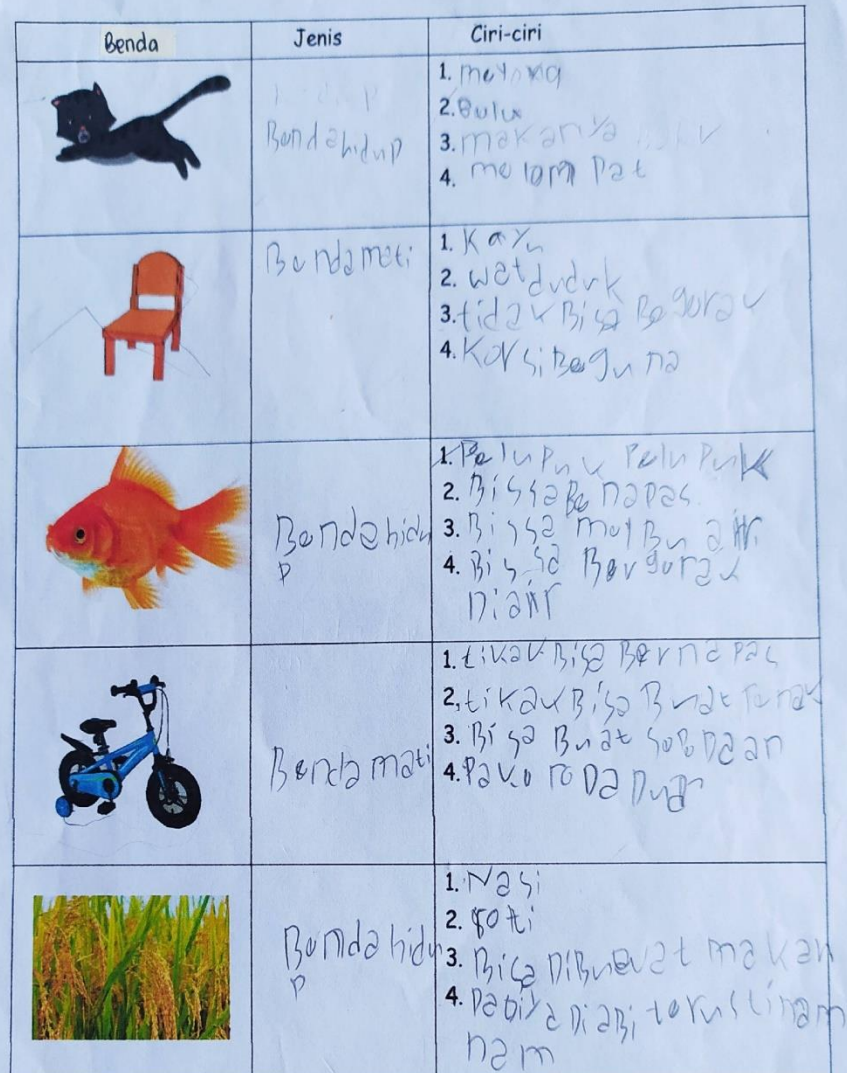 Benda Jenis Ciri-ciri
Benda hidup
1. meyong
2. Bulu
3. makanya
4. melompat
Benda mati
1. Kayu
2. wat duduk
3. tidak Bisa Begerak
4. Korsi Beguna
Benda hidu
p
1. Pelupuk Pelupuk
2. Bissa Be napas
3. Bissa
4. Bissa Bergerak
Diair
Benda mati
1. tikak Bisa Bernapas
2. tikak Bisa Buat
3. Bisa Buat Sepedaan
4. Pake roda Dua
Benda hidu
p
1. Nasi
2. roti
3. Bisa DiBuevat makan
4. terus tinam
nam